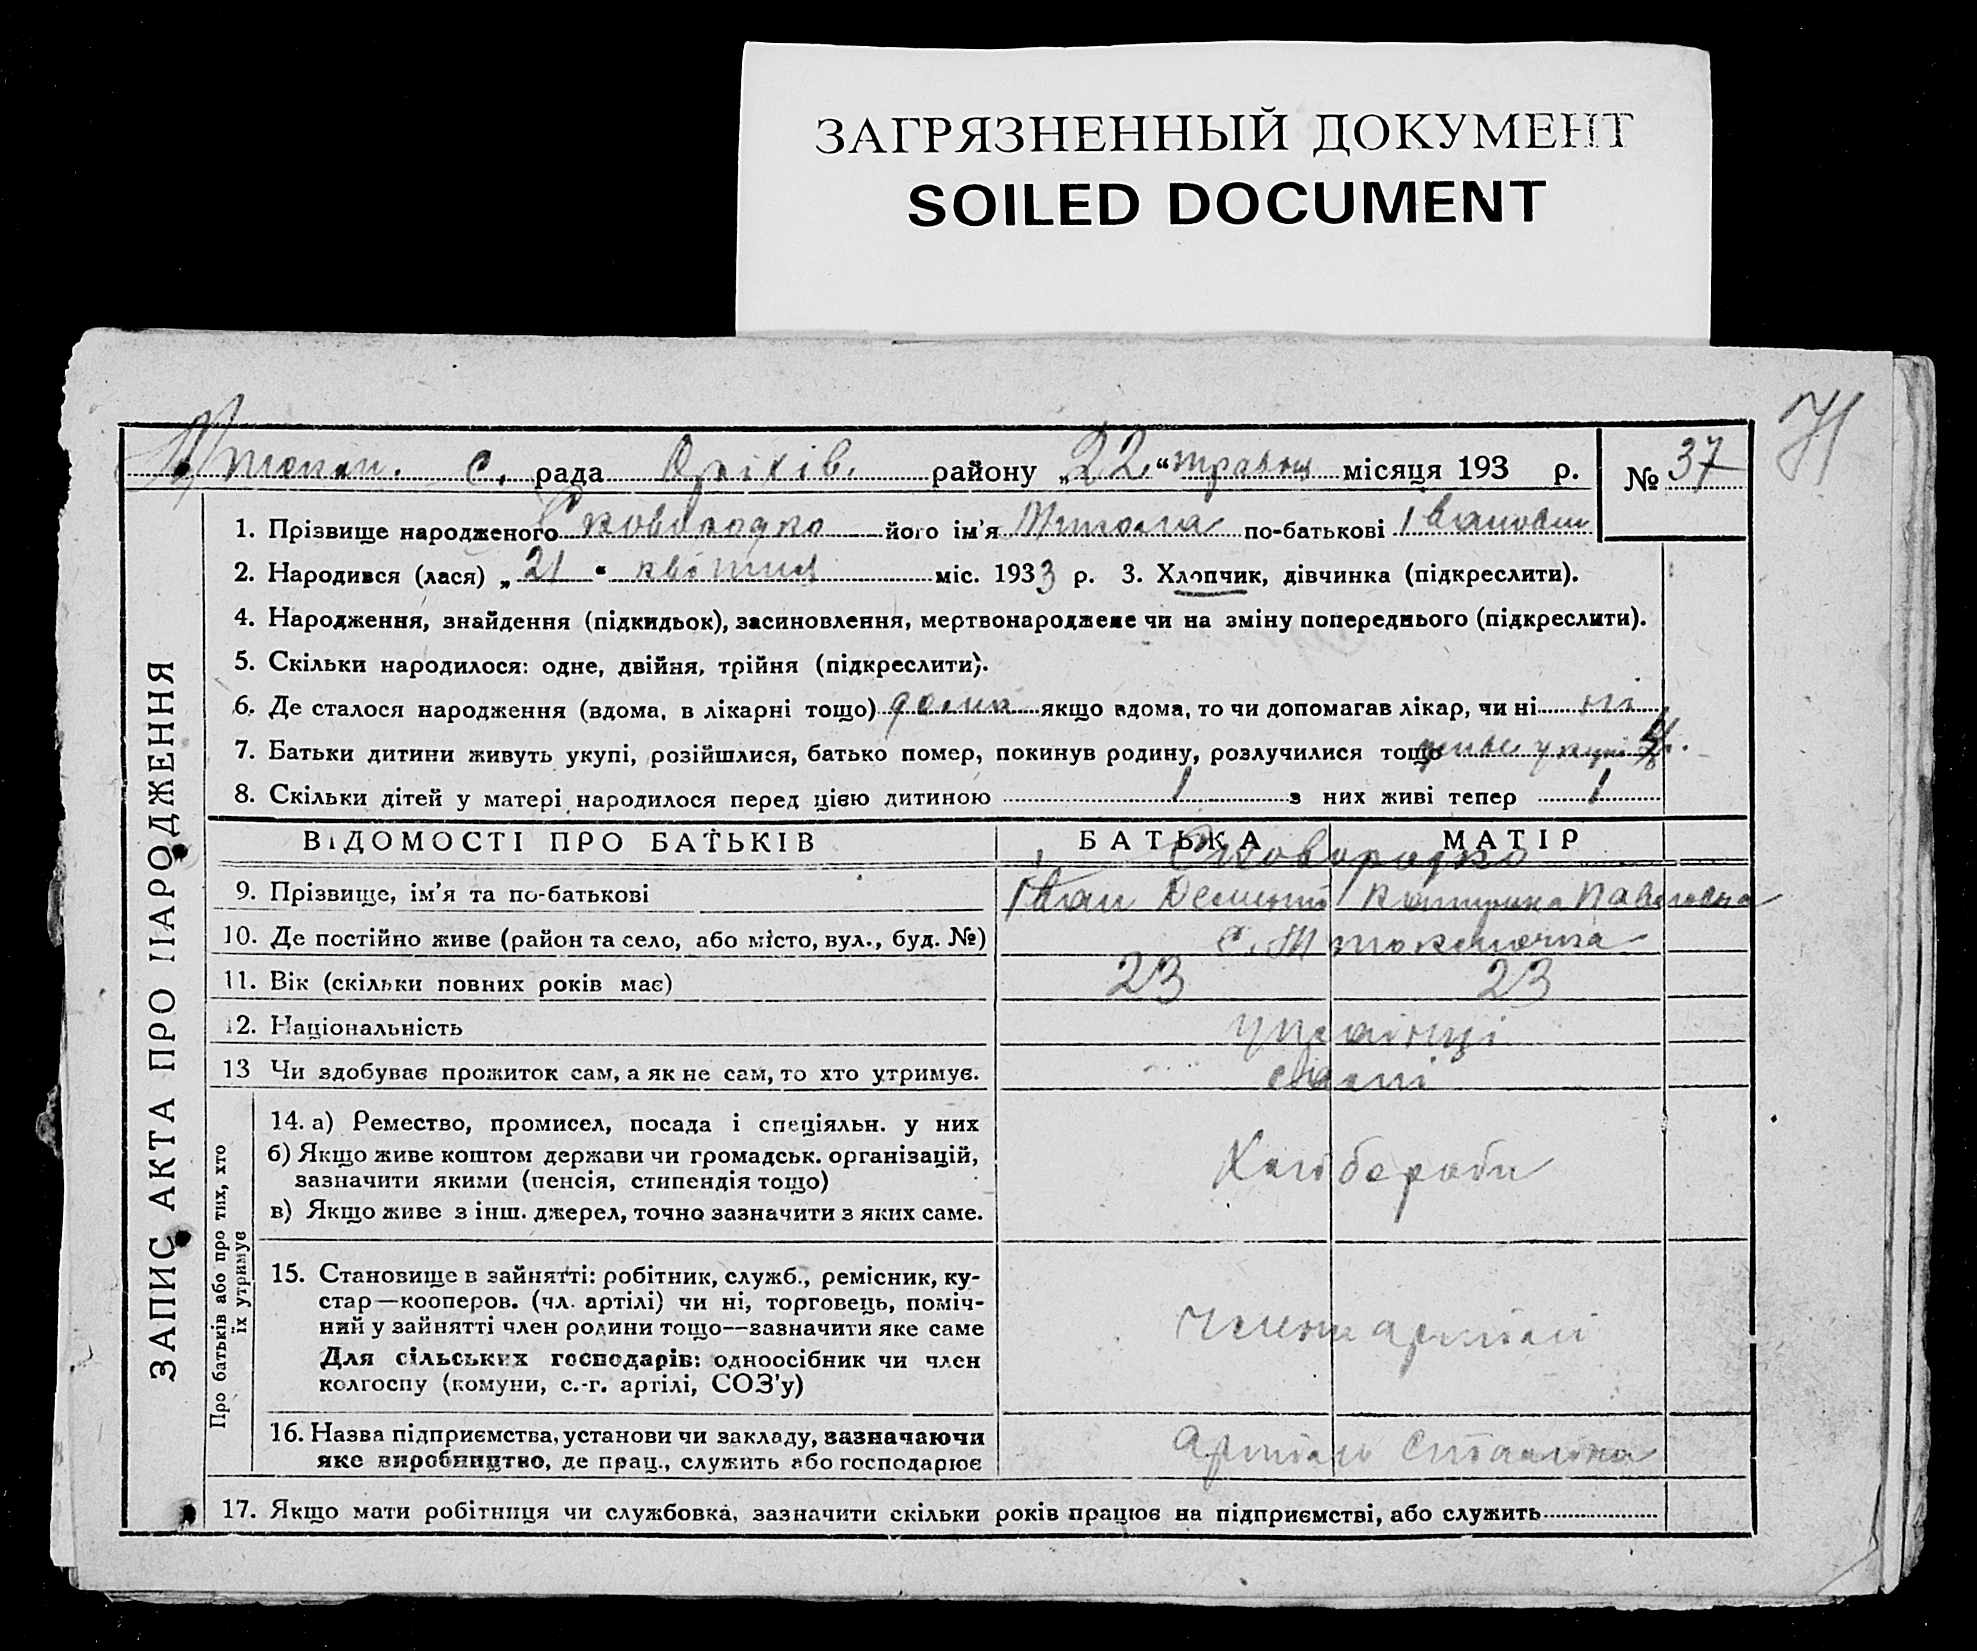 ЗАГРЯЗНЕННЫЙ ДОКУМЕНТ
SOILED DOCUMENT
71
с. рада Оріхів. району „22“ травня місяця 193 р. № 37
1. Прізвище народженого Сковородко його ім'я Микола по-батькові Іванович
2. Народився (лася) „21“ квітня міс. 1933 р. 3. Хлопчик, дівчинка (підкреслити).
4. Народження, знайдення (підкидьок), засиновлення, мертвонароджене чи на зміну попереднього (підкреслити).
5. Скільки народилося: одне, двійня, трійня (підкреслити).
6. Де сталося народження (вдома, в лікарні тощо) дома якщо вдома, то чи допомагав лікар, чи ні ні
7. Батьки дитини живуть укупі, розійшлися, батько помер, покинув родину, розлучилися тощо живе укупі
8. Скільки дітей у матері народилося перед цією дитиною 1 з них живі тепер 1
ЗАПИС АКТА ПРО НАРОДЖЕННЯ
ВІДОМОСТІ ПРО БАТЬКІВ БАТЬКА МАТІР
Сковородко
9. Прізвище, ім'я та по-батькові Іван Демент Катерина Павловна
10. Де постійно живе (район та село, або місто, вул., буд. №) с.
11. Вік (скільки повних років має) 23 23
12. Національність українці
13 Чи здобуває прожиток сам, а як не сам, то хто утримує. самі
Про батьків або про тих, хто їх утримує
14. а) Ремество, промисел, посада і спеціяльн. у них
б) Якщо живе коштом держави чи громадськ. організацій,
зазначити якими (пенсія, стипендія тощо)
Хлібороби
в) Якщо живе з інш. джерел, точно зазначити з яких саме.
15. Становище в зайнятті: робітник, служб., ремісник, ку-
стар—кооперов. (чл. артілі) чи ні, торговець, поміч-
ний у зайнятті член родини тощо—зазначити яке саме
Члени артілі
Для сільських господарів: одноосібник чи член
колгоспу (комуни, с.-г. артілі, СОЗ'у)
16. Назва підприємства, установи чи закладу, зазначаючи
яке виробництво, де прац., служить або господарює
Артіль Сталіна
17. Якщо мати робітниця чи службовка, зазначити скільки років працює на підприємстві, або служить